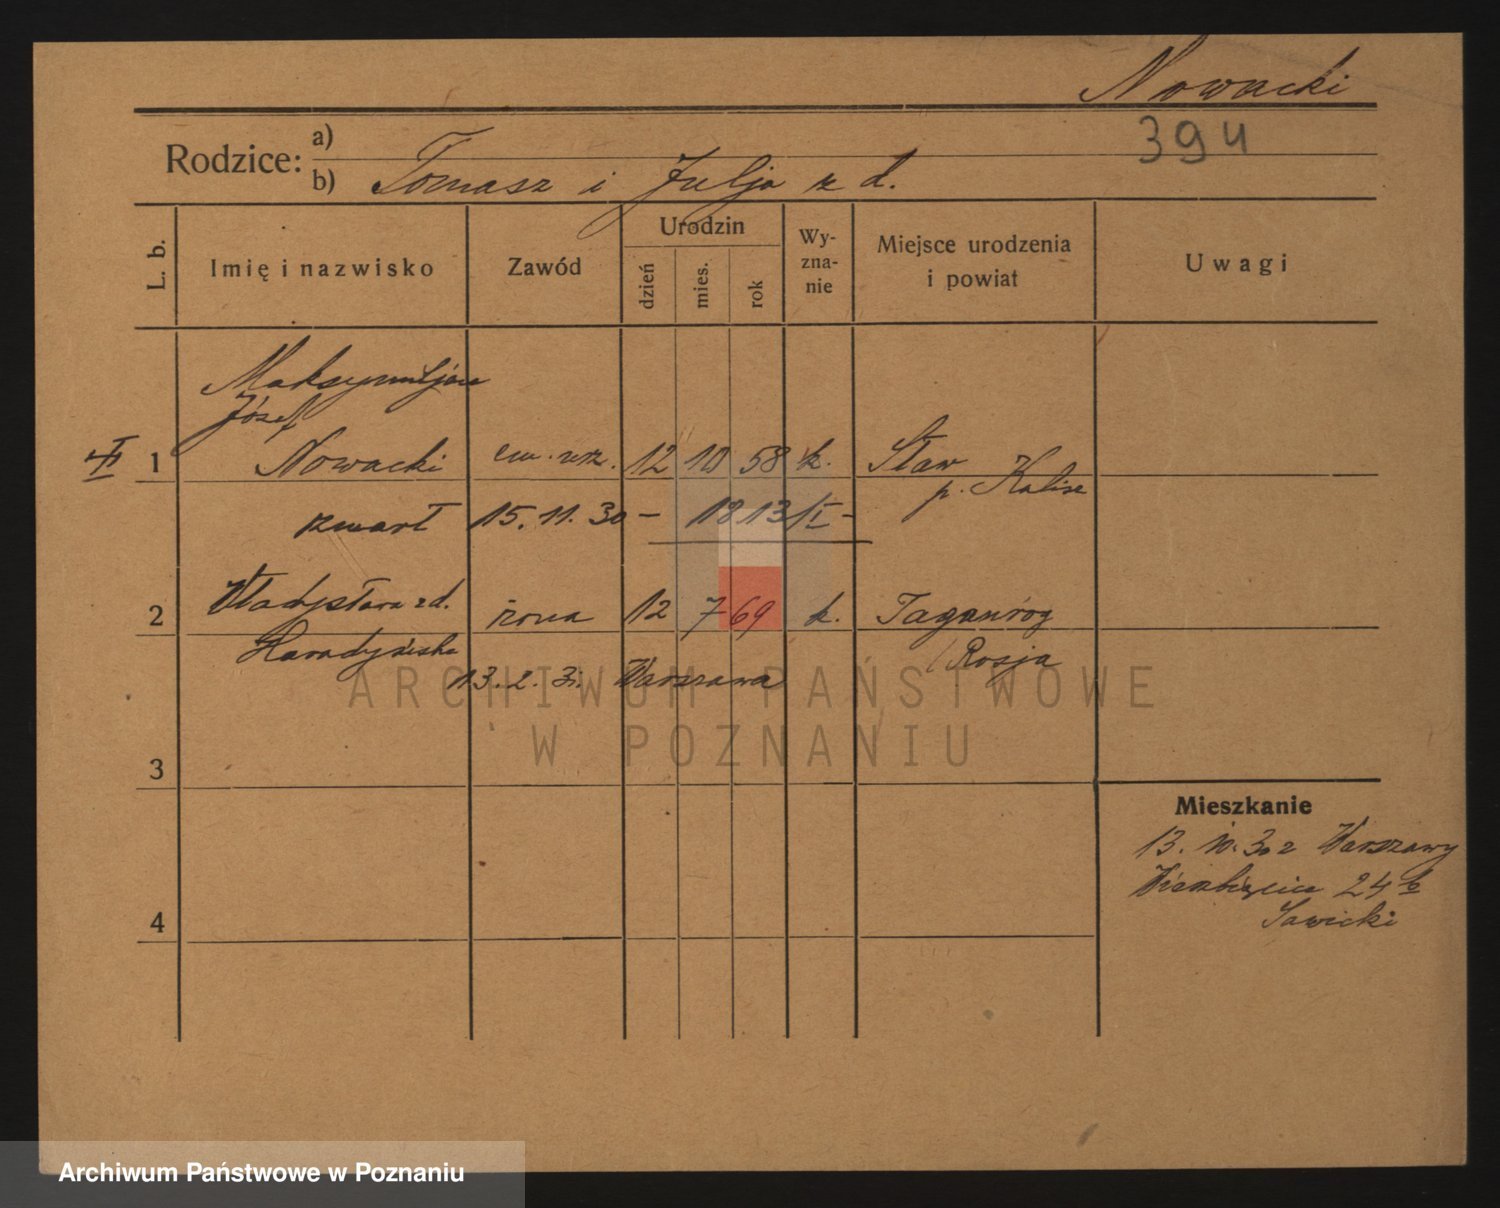 Nowacki
394
Rodzice: a)
b) Tomasz i Julja z d.
L. b. Imię i nazwisko Zawód Urodzin dzień mies. rok Wy-zna-nie Miejsce urodzenia i powiat Uwagi
Maksymiljan
Józef
1 Nowacki em. urz. 12 10 58 k. Staw
p. Kalisz
zmarł 15.11.30 – 1813/I –
2 Władysława z d. żona 12 7 69 k. Taganróg
Rosja
13.2.31. Warszawa
3
4
Mieszkanie
13. 30 z Warszawy
24
Sawicki
ARCHIWUM PAŃSTWOWE
W POZNANIU
Archiwum Państwowe w Poznaniu